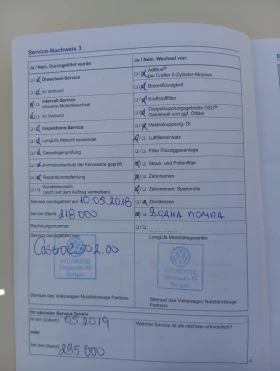 Service-Nachweis 3
Ja / Nein, Durchgeführt wurde:
Ja / Nein, Wechsel von:
Ölwechsel-Service
AdBlue®
bei Crafter 4-Zylinder-Motoren
im Verbund
Bremsflüssigkeit
Intervall-Service
inklusive Motorölwechsel
Kraftstofffilter
im Verbund
Doppelkupplungsgetriebe DSG®:
Getriebeöl und ggf. Ölfilter
Inspektions-Service
Haldexkupplung: Öl
LongLife Motoröl verwendet
Luftfiltereinsatz
Bewegungsprüfung
Filter Flüssiggasanlage
Korrosionsschutz der Karosserie geprüft
Staub- und Pollenfilter
Reparaturempfehlung
Zahnriemen
Kundenwunsch
(auch auf dem Auftrag vermerken)
Zahnriemen, Spannrolle
Service durchgeführt am 10.05.2018
Zündkerzen
bei km-Stand: 218 000
ВОДНА ПОМПА
Rechnungsnummer
Service durchgeführt von
LongLife Mobilitätsgarantie:
Castrol 502.00
Stempel des Volkswagen Nutzfahrzeuge
Partners
Stempel des Volkswagen Nutzfahrzeuge
Partners
Ihr nächster Service-Termin
ist am (Datum) 05.2019
Welcher Service ist als nächster erforderlich?
oder
bei km-Stand: 235 000